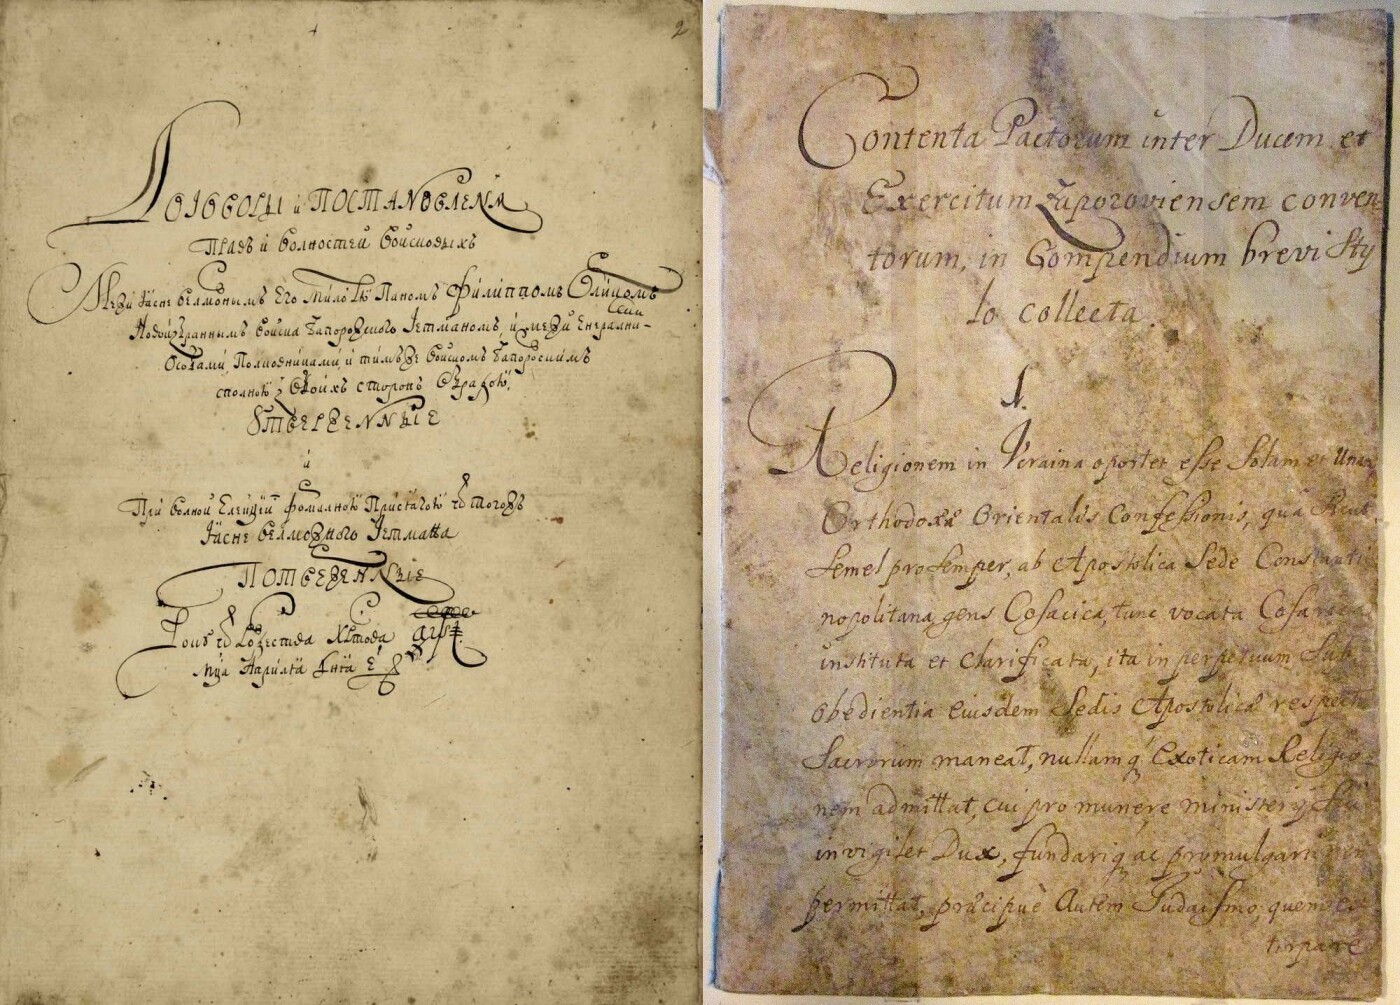 2
Договоры и Постановленѧ
Правъ и волностей войсковыхъ
Межи Ясне велможнымъ Его милостю Паномъ Филиппомъ Орликомъ
Новоизбраннымъ войска Запорожского Гетманомъ, и межи Енералними
Особами, Полковниками, и тимъже войскомъ Запорозскимъ
сполною з обоихъ сторонъ
Утверженные
и
При волной Елекции формалною Присягою ѿ тогожъ
Ясне велможного Гетмана
Потверженные
Року ѿ Рожества Христова
Мця Априля
Contenta Pactorum inter Ducem et
Exercitum Zaporoviensem conven
torum, in Compendium brevi Sty
lo collecta.
1.
Religionem in Ucraina oportet esse Solam et Unam
Orthodoxæ Orientalis Confessionis, quâ
Semel pro Semper, ab Apostolica Sede Constanti
nopolitana, gens Cosacica, tunc vocata
instituta et clarificata, ita in perpetuum Sub
obedientia eiusdem Sedis Apostolicæ respectu
Sacrorum maneat, nullamq́ Exoticam Religio
nem admittat, cui pro munere ministerij Sui
invigilet Dux, fundariq́ ac promulgari non
permittat, præcipuè autem Judaismo, quem ex
tirpare